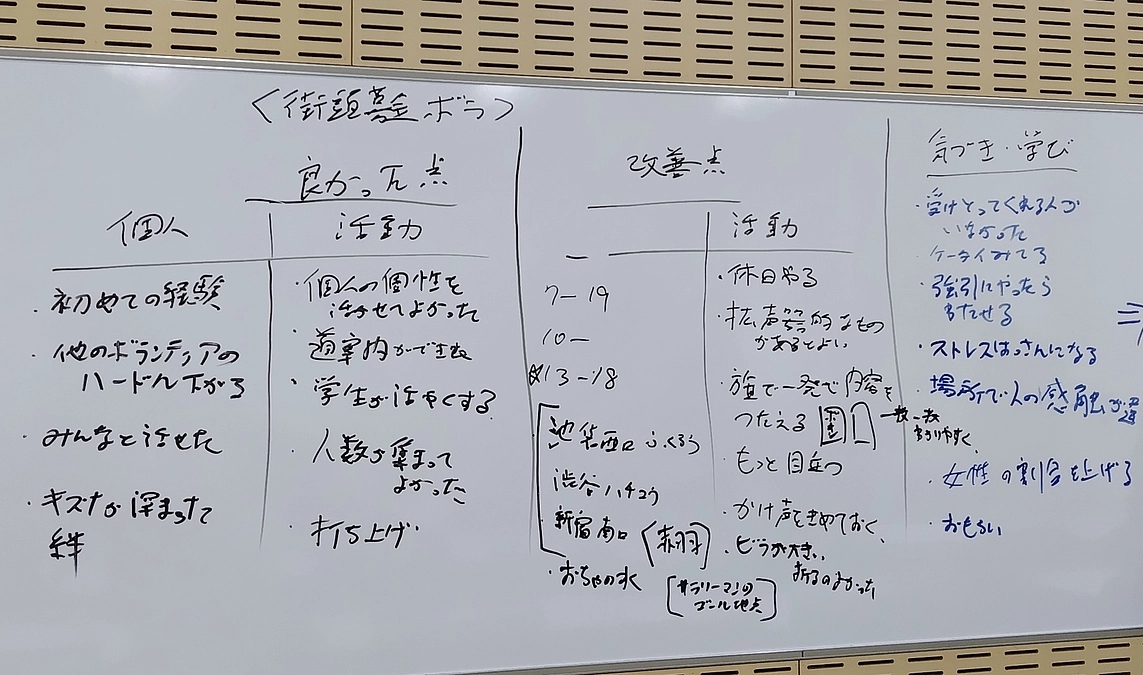 〈街頭募金ボラ〉
良かった点
個人
・初めての経験
・他のボランティアの
ハードル下がる
・みんなと話せた
・キズナが深まった
絆
活動
・個人の個性を
活かせてよかった
・道案内ができた
・学生が活やくする
・人数が集まって
よかった
・打ち上げ
改善点
7-19
10-
13-18
池袋西口ふくろう
渋谷ハチ公
・新宿南口
〈赤羽〉
・おちゃの水
[サラリーマンの
ゴール地点]
活動
・休日やる
・拡声器的なもの
があるとよい
・旗で一発で内容を
つたえる
一枚一枚
・もっと目立つ
・かけ声をきめておく、
・ビラが大きい、
折るのよかった
気づき・学び
・受けとってくれる人が
いなかった
・ケータイみてる
・強引にやったら
・ストレスはっさんになる
・場所で人の感触が違
・女性の割合を上げる
・おもろい